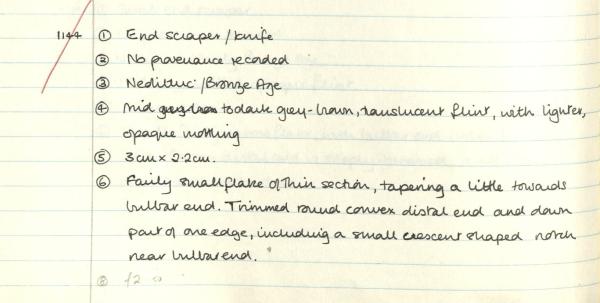 1144 ① End scraper/knife
② No provenance recorded
③ Neolithic/Bronze Age
④ Mid to dark grey-brown, translucent flint, with lighter,
opaque mottling
⑤ 3cm x 2.2cm.
⑥ Fairly small flake of thin section, tapering a little towards
bulbar end. Trimmed round convex distal end and down
part of one edge, including a small crescent shaped notch
near bulbar end.
⑧ £2